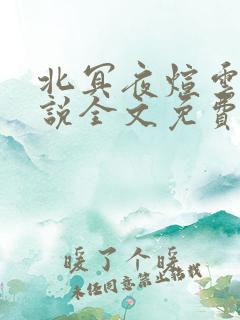 北冥夜煊雲
說全文免費
暖了个暖
未经同意禁止转载